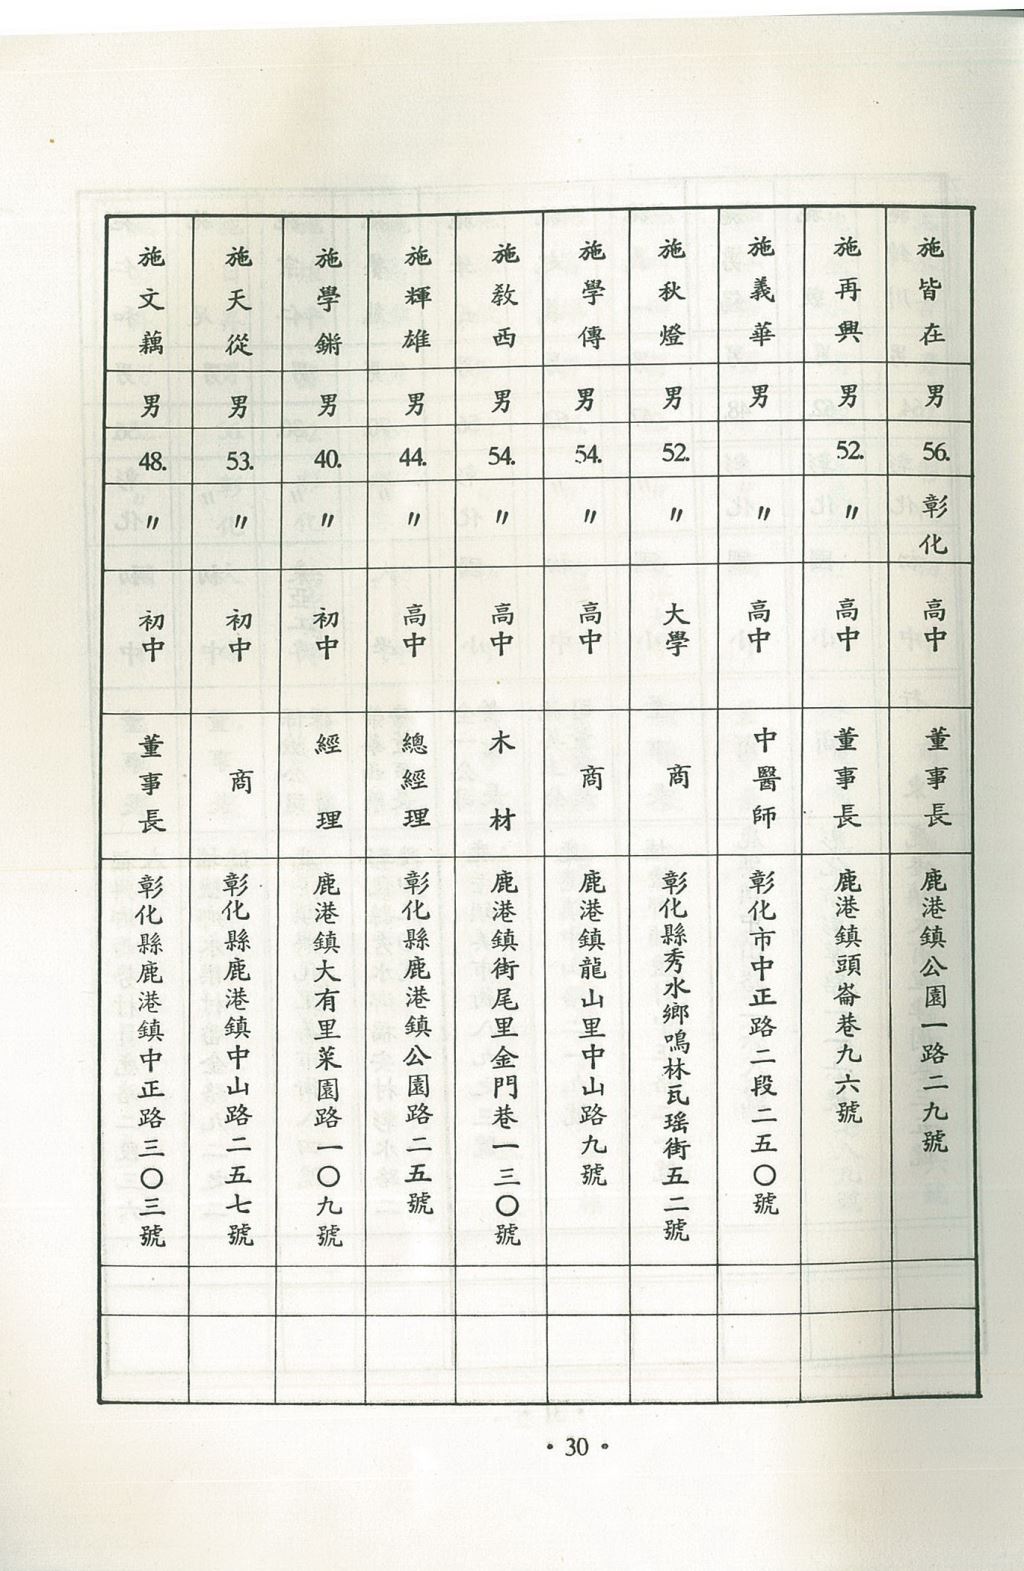 施皆在 男 56. 彰化 高中 董事長 鹿港鎮公園一路二九號
施再興 男 52. 〃 高中 董事長 鹿港鎮頭崙巷九六號
施義華 男 〃 高中 中醫師 彰化市中正路二段二五〇號
施秋燈 男 52. 〃 大學 商 彰化縣秀水鄉鳴林瓦瑤街五二號
施學傳 男 54. 〃 高中 商 鹿港鎮龍山里中山路九號
施教西 男 54. 〃 高中 木材 鹿港鎮街尾里金門巷一三〇號
施輝雄 男 44. 〃 高中 總經理 彰化縣鹿港鎮公園路二五號
施學鏘 男 40. 〃 初中 經理 鹿港鎮大有里菜園路一〇九號
施天從 男 53. 〃 初中 商 彰化縣鹿港鎮中山路二五七號
施文藕 男 48. 〃 初中 董事長 彰化縣鹿港鎮中正路三〇三號
• 30 •